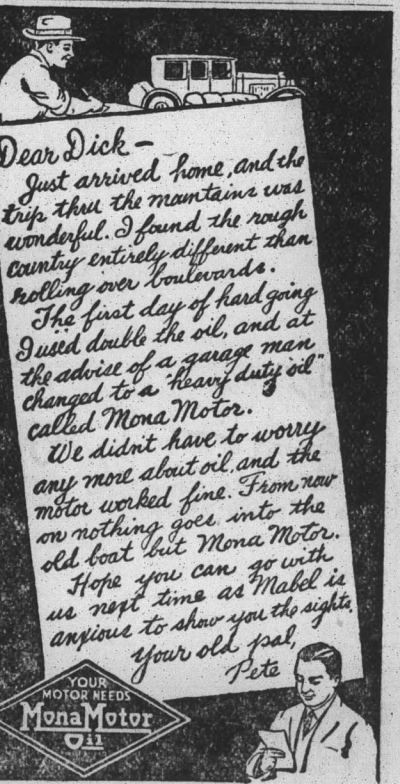 Dear Dick—
Just arrived home, and the
trip thru the mountains was
wonderful. I found the rough
country entirely different than
rolling over boulevards.
The first day of hard going
I used double the oil, and at
the advise of a garage man
changed to a "heavy duty oil"
called Mona Motor.
We didn't have to worry
any more about oil, and the
motor worked fine. From now
on nothing goes into the
old boat but Mona Motor.
Hope you can go with
us next time as Mabel is
anxious to show you the sights.
Your old pal,
Pete
YOUR
MOTOR NEEDS
MonaMotor
Oil